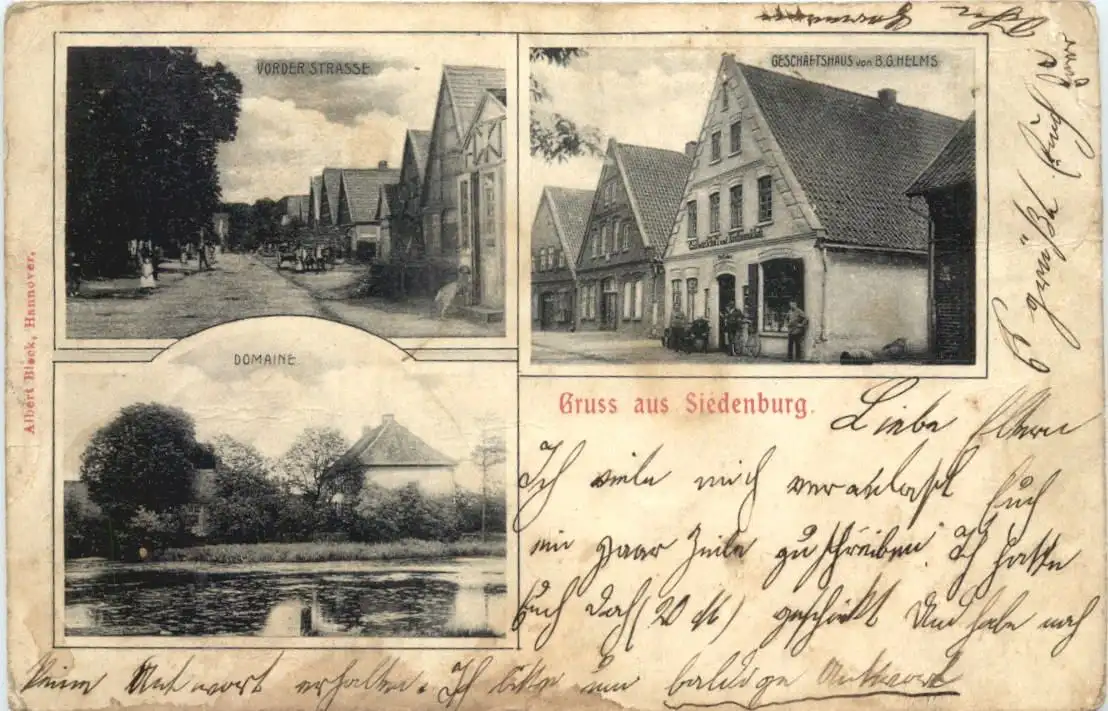 VORDER STRASSE
GESCHÄFTSHAUS von B.G. HELMS
DOMAINE
Albert Bleek, Hannover.
Gruss aus Siedenburg.
Liebe Eltern
Ich mich veranlaßt Euch
ein paar Zeile zu schreiben. Ich hatte
Euch doch (20 M) geschickt Und habe noch
keine Antwort erhalten. Ich bitte um baldige Antwort
Es grüßt Euch Euer